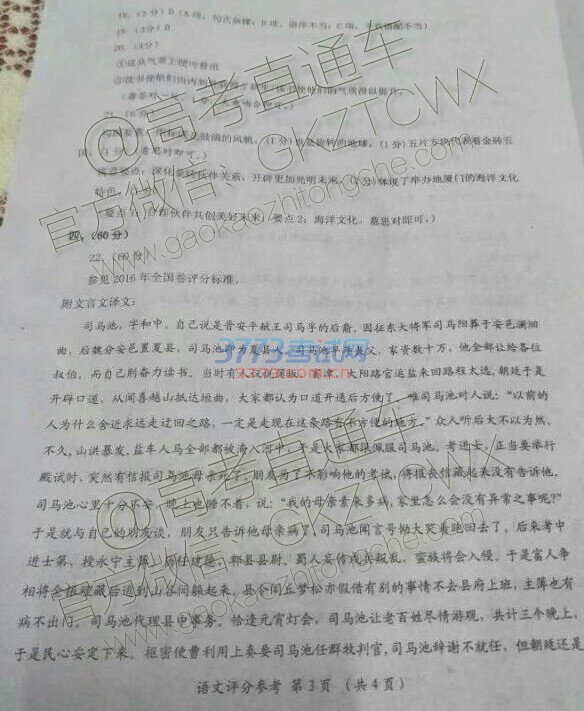 18.（3分）B（A项，句式杂糅；B项，语序不当；C项，
19.（3分）D
20.（4分）
21.（6分）
（1分）也像旋转的地球，（1分）五片方块代表着金砖五
国。（1分）（意思对即可。）
深化金砖伙伴关系，开辟更加光明未来，（2分）体现了举办地厦门的海洋文化
特色。（1分）
（要点1：合作伙伴共创美好未来；要点2：海洋文化。意思对即可。）
四、（60分）
22.（60分）
参见2016年全国卷评分标准。
附文言文译文：
司马池，字和中，自己说是晋安平献王司马孚的后裔，因征东大将军司马阳葬于安邑澜洄
曲，后魏分安邑置夏县，司马池即为夏县人。司马池早年丧父，家资数十万，他全部让给各位
叔伯，而自己则奋力读书。当时有人议论蒲坂、窦津、大阳路官运盐来回路程太远，朝廷于是
开辟口道，从闻喜越山抵达垣曲，大家都认为口道开通后方便了。唯司马池对人说：“以前的
人为什么舍近求远走迂回之路，一定是走现在这条路有不方便的地方。”众人听后大不以为然。
不久，山洪暴发，盐车人马全部都被淹入河中，于是大家都很佩服司马池。考进士，正当要举行
殿试时，突然有信报司马池母亲死了，朋友为了不影响他的考试，将报丧信藏起来没有告诉他。
司马池心里十分不安，晚上也睡不着，说：“我的母亲素来多病，家里怎么会没有异常之事呢?”
于是就与自己的朋友谈，朋友只告诉他母亲病了，司马池闻言号恸大哭着跑回去了。后来考中
进士第，授永宁主簿。历任建德、郫县县尉。蜀人妄传戍兵叛乱，蛮族将会入侵。于是富人争
相将金银埋藏后逃到山谷间躲起来。县令闾丘梦松亦假借有别的事情不去县府上班，主薄也有
病不出门。司马池代理县中事务。恰逢元宵灯会，司马池让老百姓尽情游观，共计三个晚上，
于是民心安定下来。枢密使曹利用上奏要司马池任群牧判官，司马池辞谢不就任，但朝廷还是
语文评分参考 第3页（共4页）
@高考直通车
官方微信：GKZTCWX
www.gaokaozhitongche.com
3773考试网